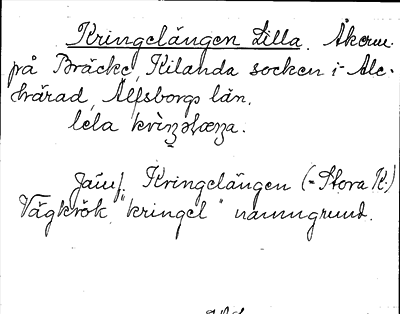 Kringelängen Lilla. Åkerm.
på Bräcke, Kilanda socken i Ale-
härad, Älfsborgs län.
lela
Jämf. Kringelängen (= Stora K.)
Vägkrök "kringel" namngrund.